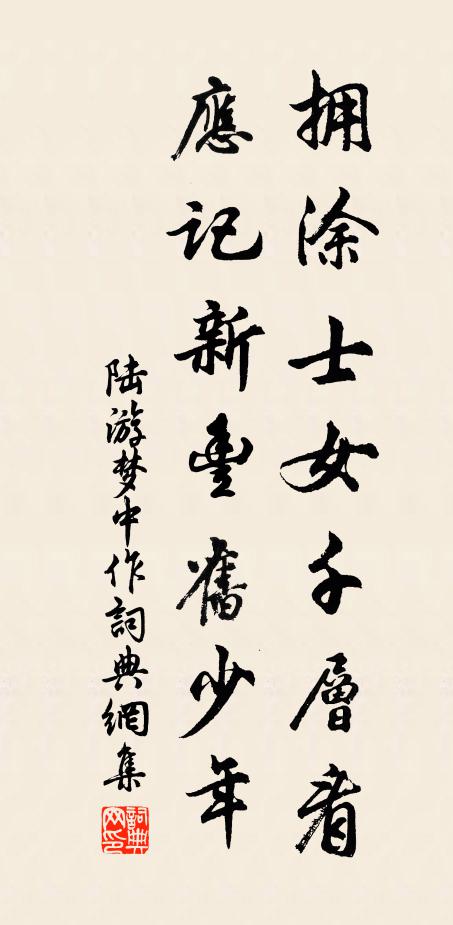 拥涂士女千層看
應記新豊舊少年
陆游梦中作詞典網集
詞典
网印